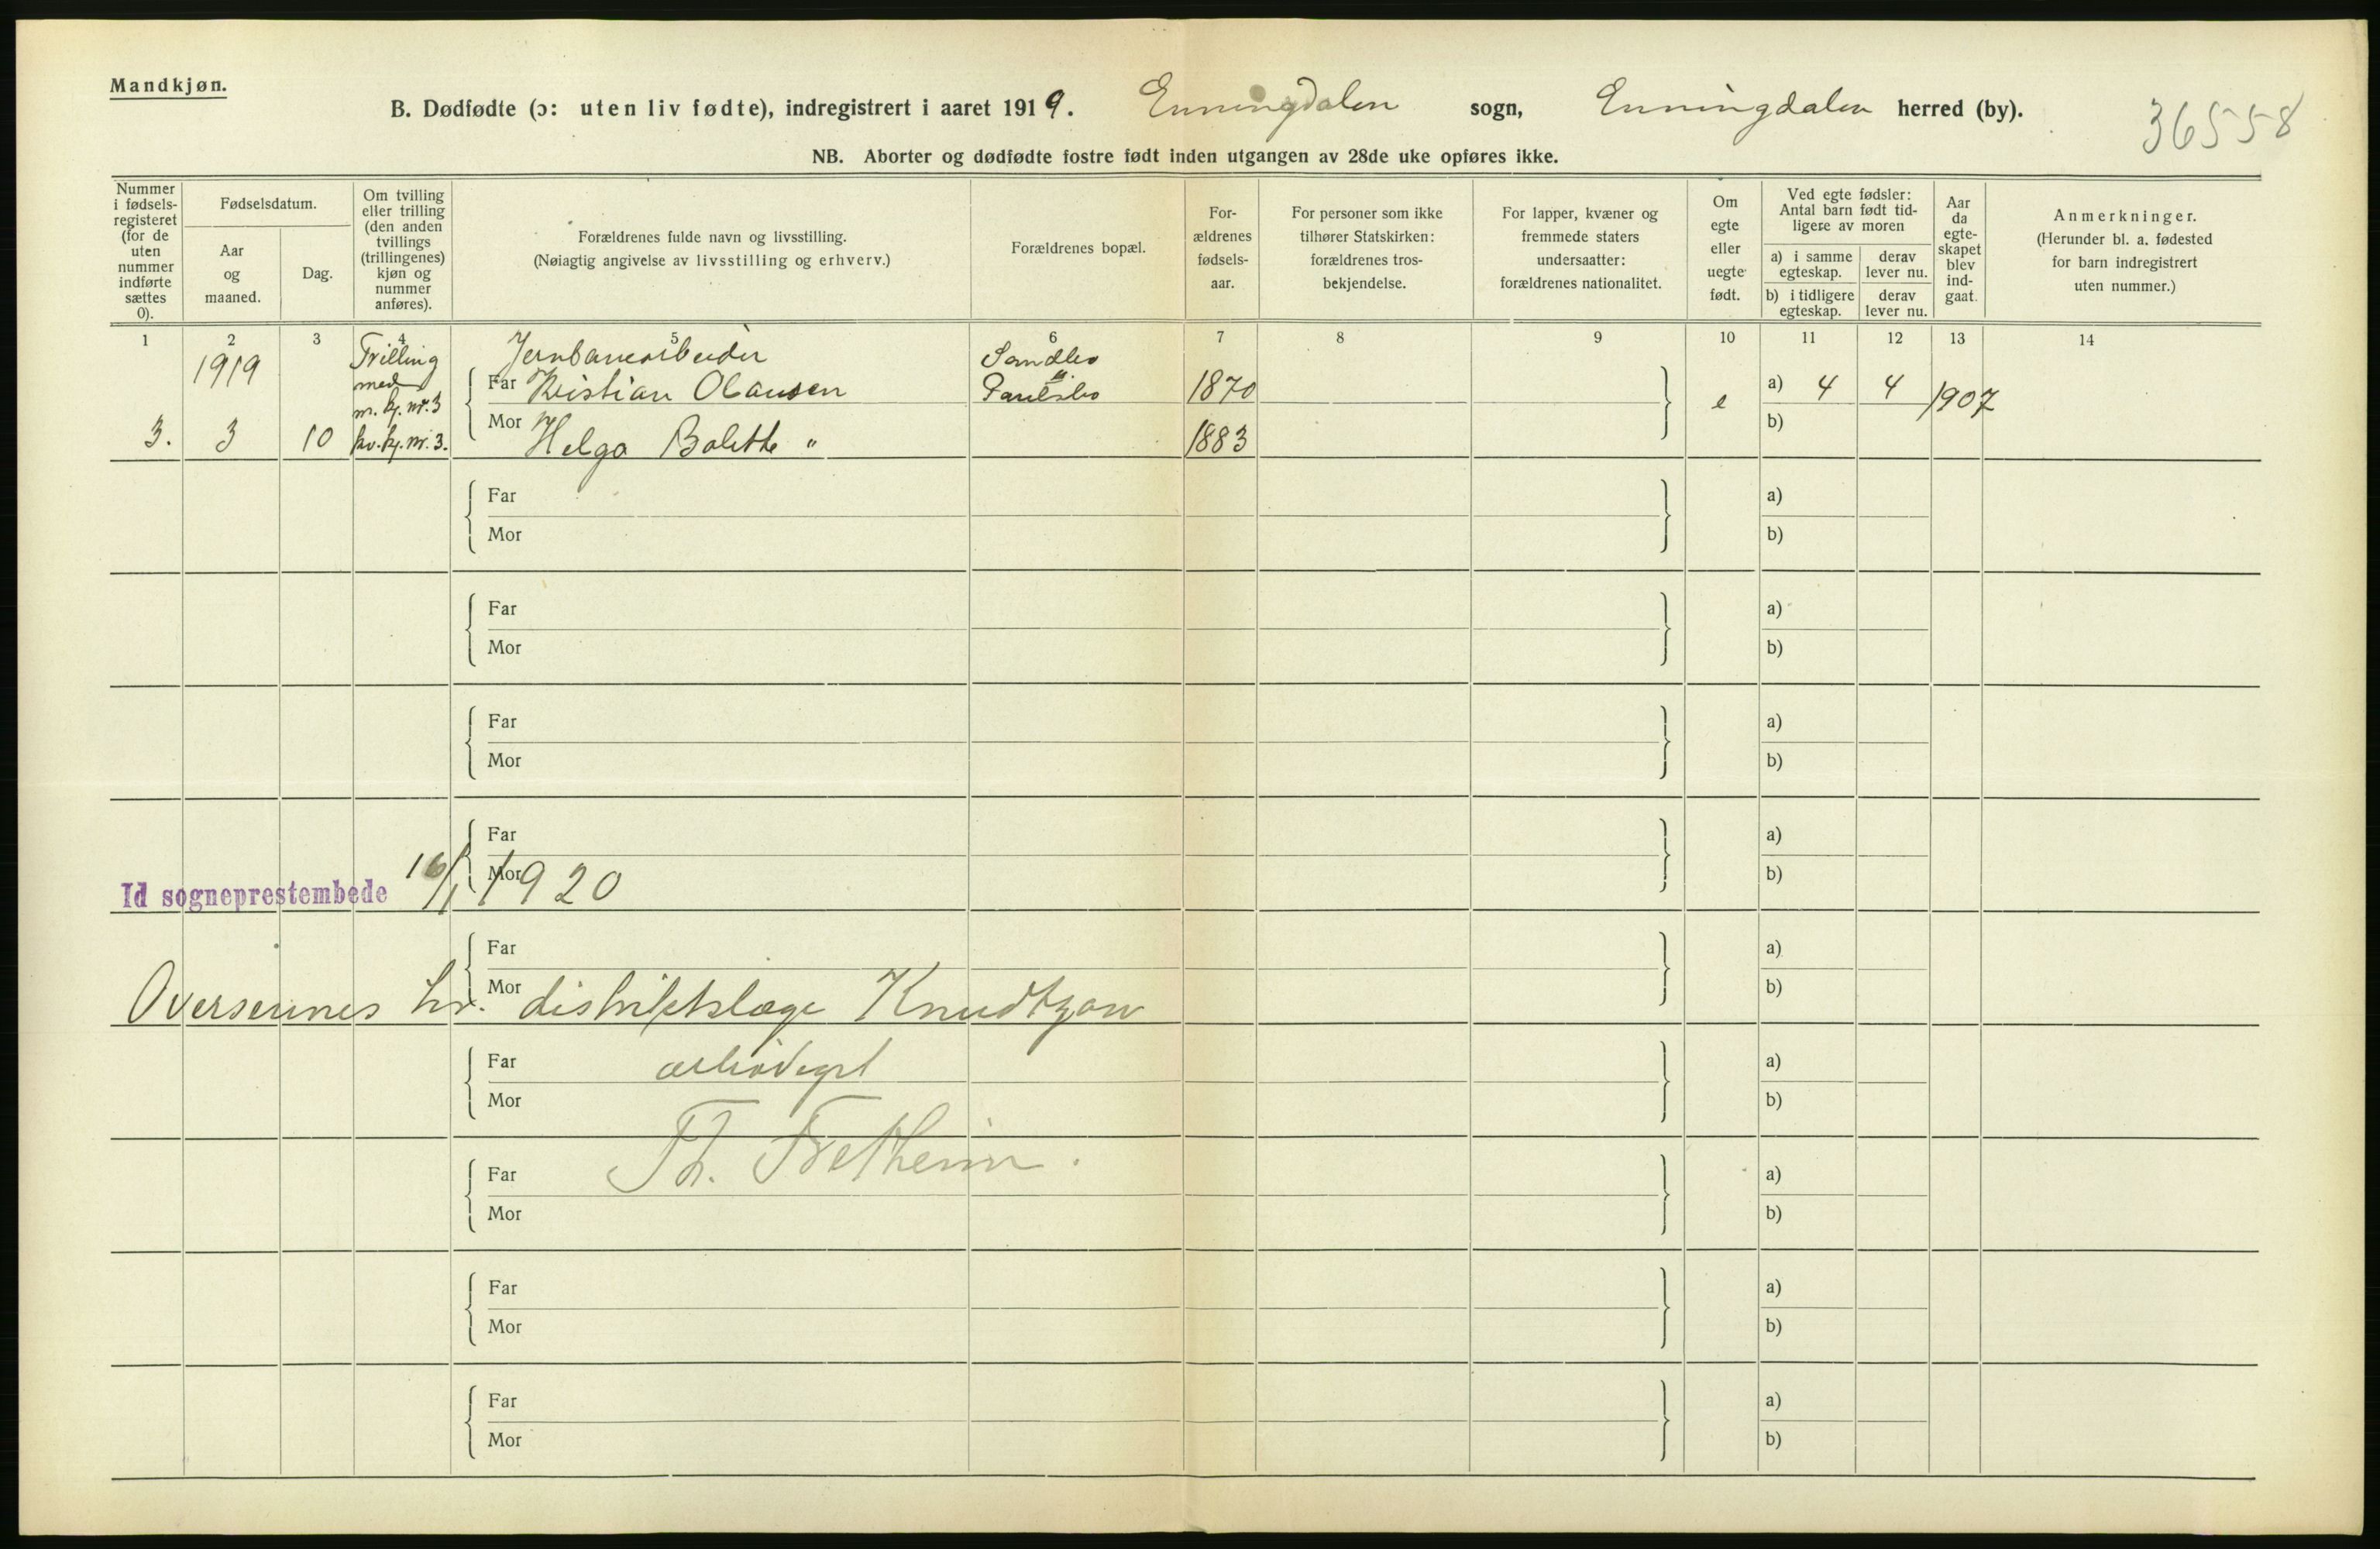 Mandkjøn.
B. Dødfødte (ɔ: uten liv fødte), indregistrert i aaret 1919. Enningdalen sogn, Enningdalen herred (by).
36558
NB. Aborter og dødfødte fostre født inden utgangen av 28de uke opføres ikke.
Nummer i fødsels-registeret (for de uten nummer indførte sættes 0).
Fødselsdatum.
Aar og maaned.
Dag.
Om tvilling eller trilling (den anden tvillings (trillingenes) kjøn og nummer anføres).
Forældrenes fulde navn og livsstilling.
(Nøiagtig angivelse av livsstilling og erhverv.)
Forældrenes bopæl.
For-ældrenes fødsels-aar.
For personer som ikke tilhører Statskirken: forældrenes tros-bekjendelse.
For lapper, kvæner og fremmede staters undersaatter: forældrenes nationalitet.
Om egte eller uegte født.
Ved egte fødsler: Antal barn født tid-ligere av moren
a) i samme egteskap.
derav lever nu.
b) i tidligere egteskap.
derav lever nu.
Aar da egte-skapet blev ind-gaat.
Anmerkninger.
(Herunder bl. a. fødested for barn indregistrert uten nummer.)
1 2 3 4 5 6 7 8 9 10 11 12 13 14
1919 Trilling Jernbanearbeider
med Far Kristian Olausen 1870 e a) 4 4 1907
m. kj. nr. 3
3. 3 10 kv. kj. nr. 3. Mor Helga Bolette " 1883 b)
Far a)
Mor b)
Far a)
Mor b)
Far a)
Mor b)
Far a)
Id sogneprestembede 16/1 1920 Mor b)
Far a)
Mor b)
Oversennes hr. distriktslæge Knudtzon
Far ærbødigst a)
Mor b)
Th. Fretheim.
Far a)
Mor b)
Far a)
Mor b)
Far a)
Mor b)